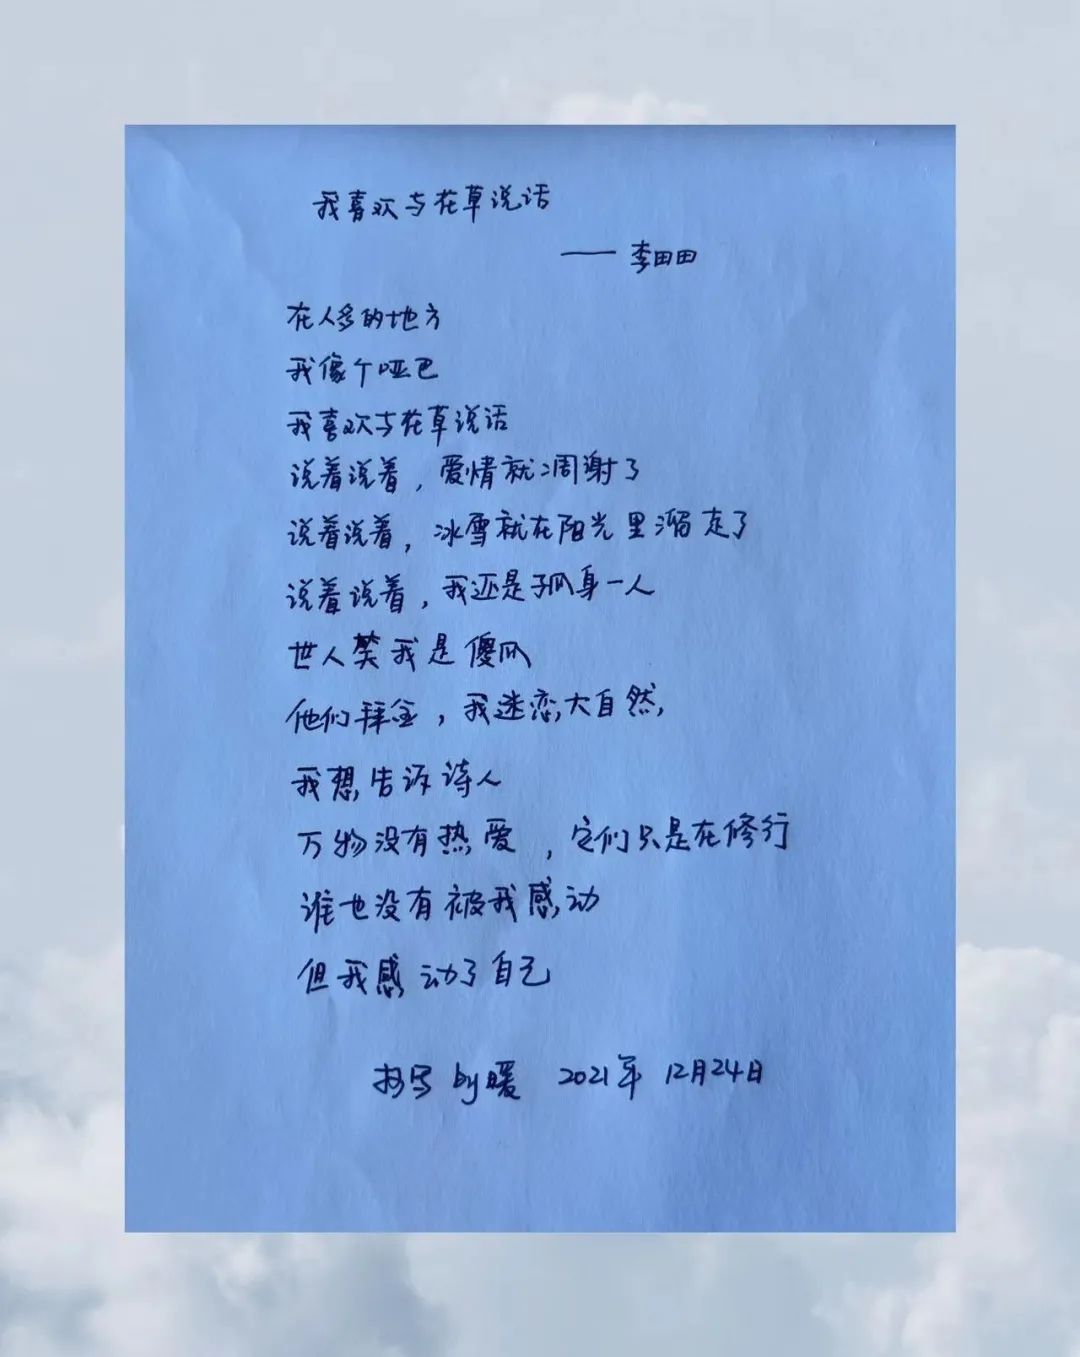 我喜欢与花草说话
—— 李田田
在人多的地方
我像个哑巴
我喜欢与花草说话
说着说着，爱情就凋谢了
说着说着，冰雪就在阳光里溜走了
说着说着，我还是孤身一人
世人笑我是傻瓜
他们拜金，我迷恋大自然，
我想告诉诗人
万物没有热爱，它们只是在修行
谁也没有被我感动
但我感动了自己
抄写 by 暖 2021年 12月24日